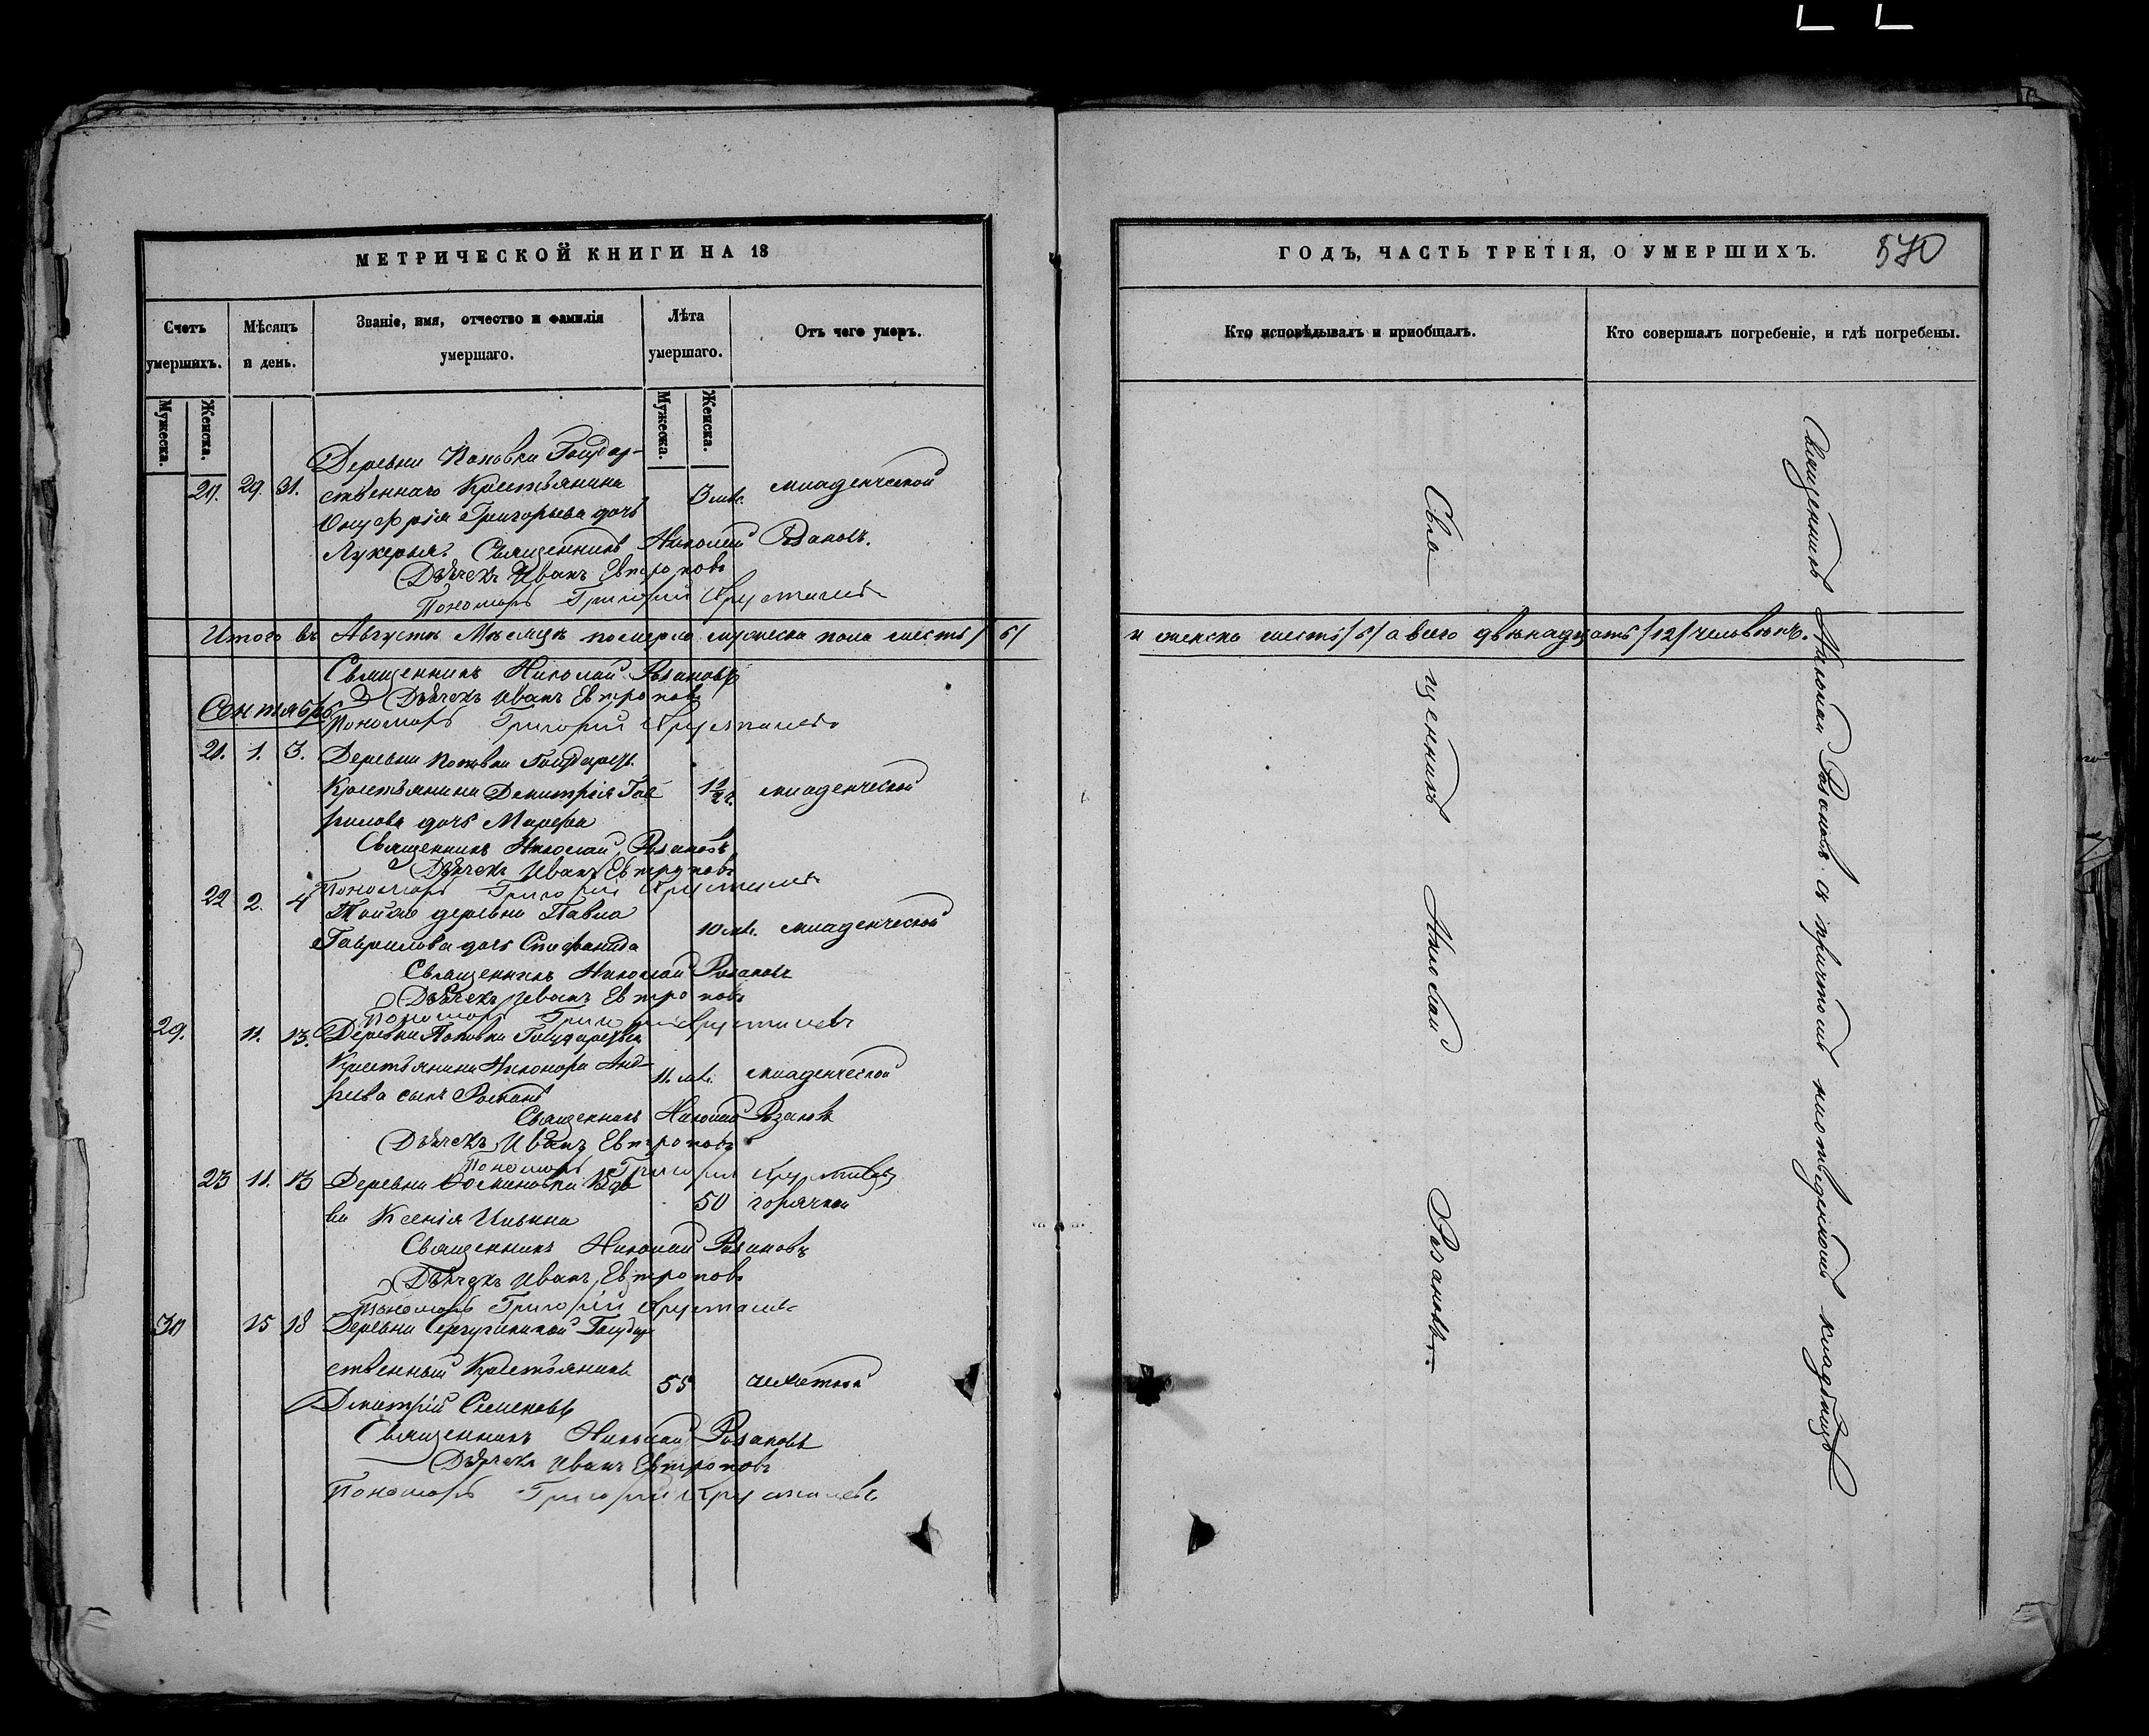 МЕТРИЧЕСКОЙ КНИГИ НА 18
Счетъ умершихъ.
Мѣсяцъ и день.
Званіе, имя, отчество и фамилія умершаго.
Лѣта умершаго.
Отъ чего умеръ.
Мужеска.
Женска.
Мужеска.
Женска.
Деревни Поповки Государ-
29. 31. ственнаго Крестьянина 3 мѣс. младенческой
Онуфрія Григорьева дочь
Лукерья Священникъ Николай Розановъ.
Дьячекъ Иванъ Евтроповъ
Пономарь Григорій Хрусталевъ
Итого въ Августѣ Мѣсяцѣ померло мужеска пола шесть /6/
Священникъ Николай Розановъ
Дьячекъ Иванъ Евтроповъ
Сентябрь
Пономарь Григорій Хрусталевъ
21. 1. 3. Деревни Поповки Государств.
Крестьянина Димитрія Гав 1½ г. младенческой
рилова дочь Марфа
Священникъ Николай Розановъ
Дьячекъ Иванъ Евтроповъ
Пономарь Григорій Хрусталевъ
22 2. 4 Тойже деревни Павла
Гаврилова дочь Стефанида 10 мѣс. младенческой
Священникъ Николай Розановъ
Дьячекъ Иванъ Евтроповъ
Пономарь Григорій Хрусталевъ
29. 11. 13. Деревни Поповки Государств.
Крестьянина Никонора Анд- 11. мѣс. младенческой
реева сынъ Романъ
Священникъ Николай Розановъ
Дьячекъ Иванъ Евтроповъ
Пономарь Григорій Хрусталевъ
23 11. 13 Деревни Вдо
ва Ксенія Ильина 50 горячкой
Священникъ Николай Розановъ
Дьячекъ Иванъ Евтроповъ
Пономарь Григорій Хрусталевъ
30 15 18 Деревни Государ
ственный Крестьянинъ 55 чахоткой
Дмитрій Семеновъ
Священникъ Николай Розановъ
Дьячекъ Иванъ Евтроповъ
Пономарь Григорій Хрусталевъ
ГОДЪ, ЧАСТЬ ТРЕТІЯ, О УМЕРШИХЪ. 570
Кто исповѣдывалъ и пріобщалъ.
Кто совершалъ погребеніе, и гдѣ погребены.
и женска шесть /6/ а всего двѣнадцать /12/ человѣкъ.
Священникъ Николай Розановъ.
Священникъ Николай Розановъ съ причтомъ на отведенномъ кладбищѣ